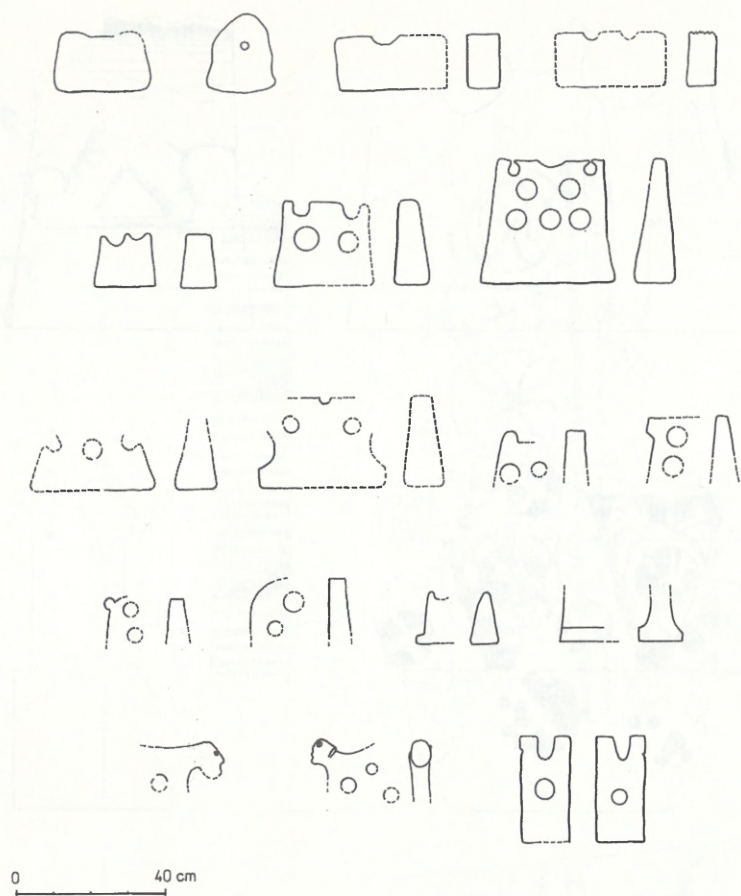 0 40 cm